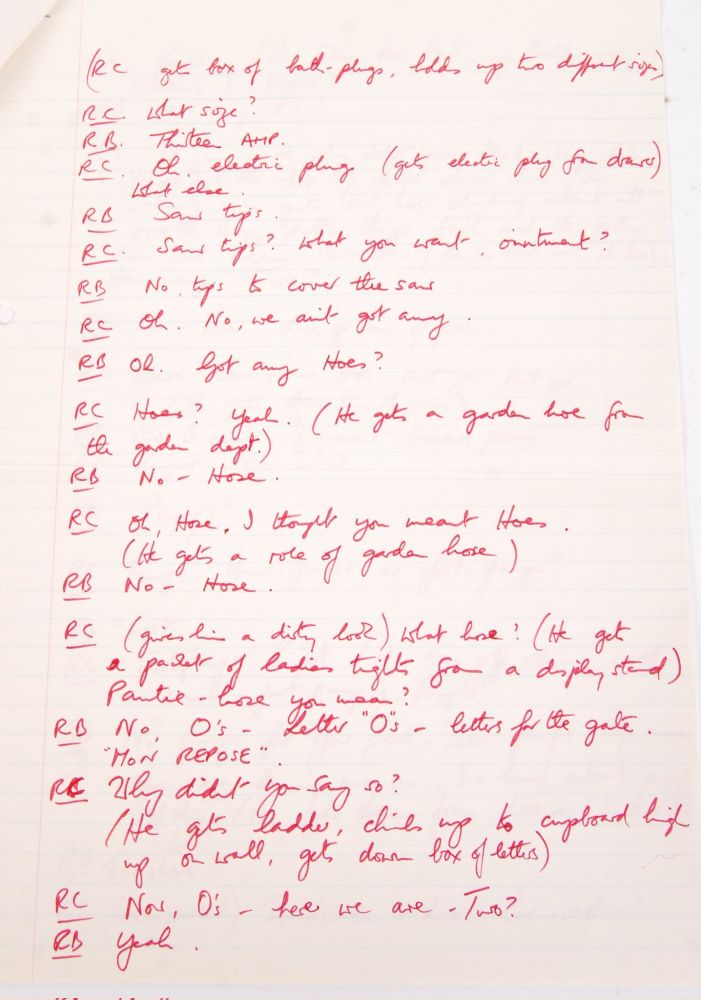 (RC gets box of bath-plugs, holds up two different sizes)
RC. What size?
RB. Thirteen AMP.
RC. Oh, electric plug (gets electric plug from drawer)
What else.
RB Saw tips.
RC. Saw tips? What you want, ointment?
RB No, tips to cover the saw
RC Oh. No, we ain't got any.
RB Oh. Got any Hoes?
RC Hoes? Yeah. (He gets a garden hoe from
the garden dept.)
RB No - Hose.
RC Oh, Hose, I thought you meant Hoes.
(He gets a role of garden hose)
RB No - Hose.
RC (gives him a dirty look) What hose? (He gets
a packet of ladies tights from a display stand)
Pantie-hose you mean?
RB No, O's - Letter "O"s - letters for the gate.
"MON REPOSE".
RC Why didn't you say so?
(He gets ladder, climbs up to cupboard high
up on wall, gets down box of letters)
RC Now, O's - here we are - Two?
RB Yeah.